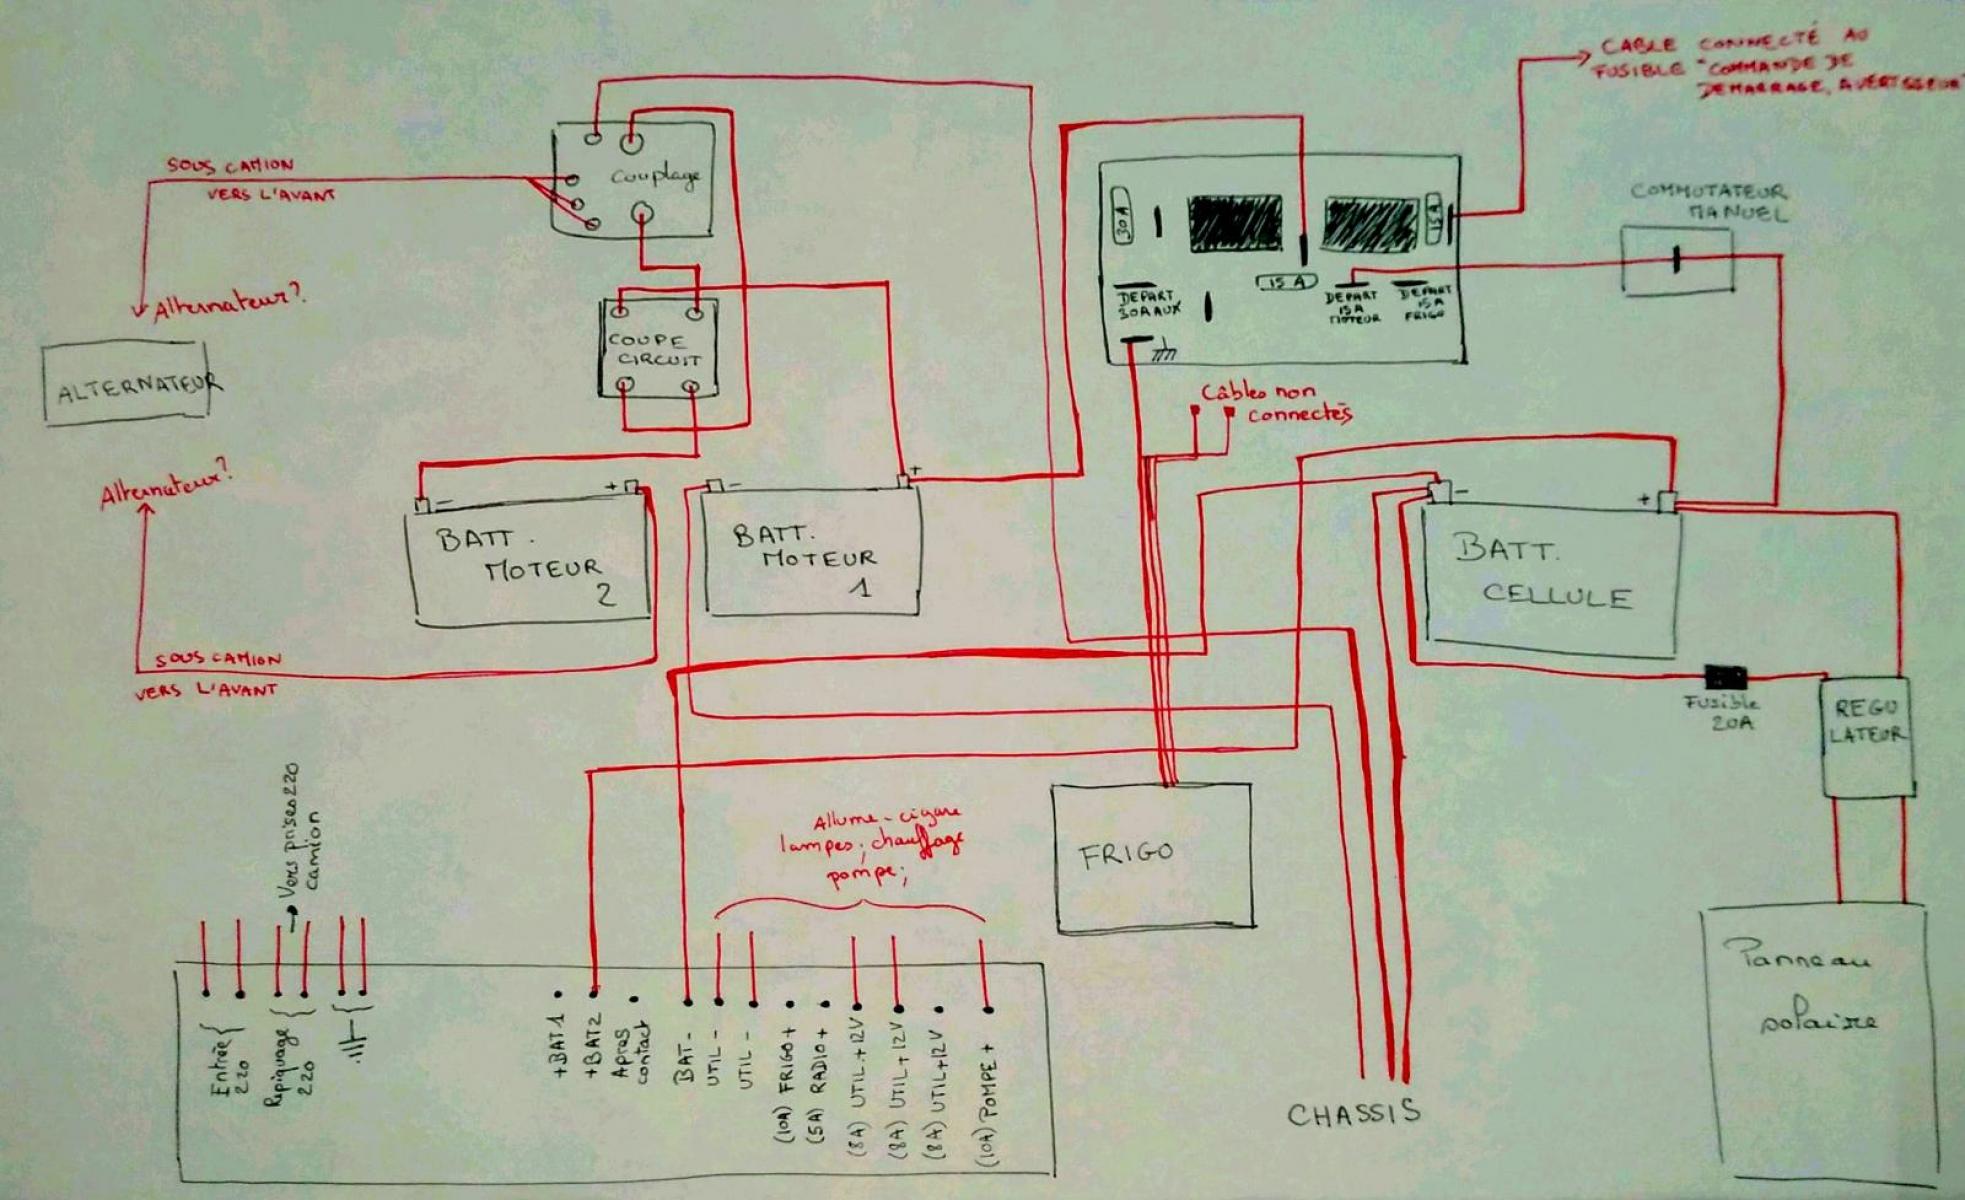 CABLE CONNECTÉ AU
FUSIBLE "COMMANDE DE
DEMARRAGE, AVERTISSEUR"
SOUS CAMION
VERS L'AVANT
Couplage
COMMUTATEUR
MANUEL
30A
15A
15 A
DEPART
30A AUX
DEPART
15A
MOTEUR
DEPART
15A
FRIGO
Alternateur?
ALTERNATEUR
COUPE
CIRCUIT
Câbles non
connectés
Alternateur?
-
+
-
+
-
+
BATT.
MOTEUR
2
BATT.
MOTEUR
1
BATT.
CELLULE
SOUS CAMION
VERS L'AVANT
Fusible
20A
REGU
LATEUR
→ Vers prises 220
camion
Allume-cigare
lampes; chauffage
pompe;
FRIGO
Panneau
solaire
Entrée
220
Repiquage
220
+BAT1
+BAT2
Apres
contact
BAT -
UTIL -
UTIL -
(10A) FRIGO +
(5A) RADIO +
(8A) UTIL.+12V
(8A) UTIL+12V
(8A) UTIL+12V
(10A) POMPE +
CHASSIS